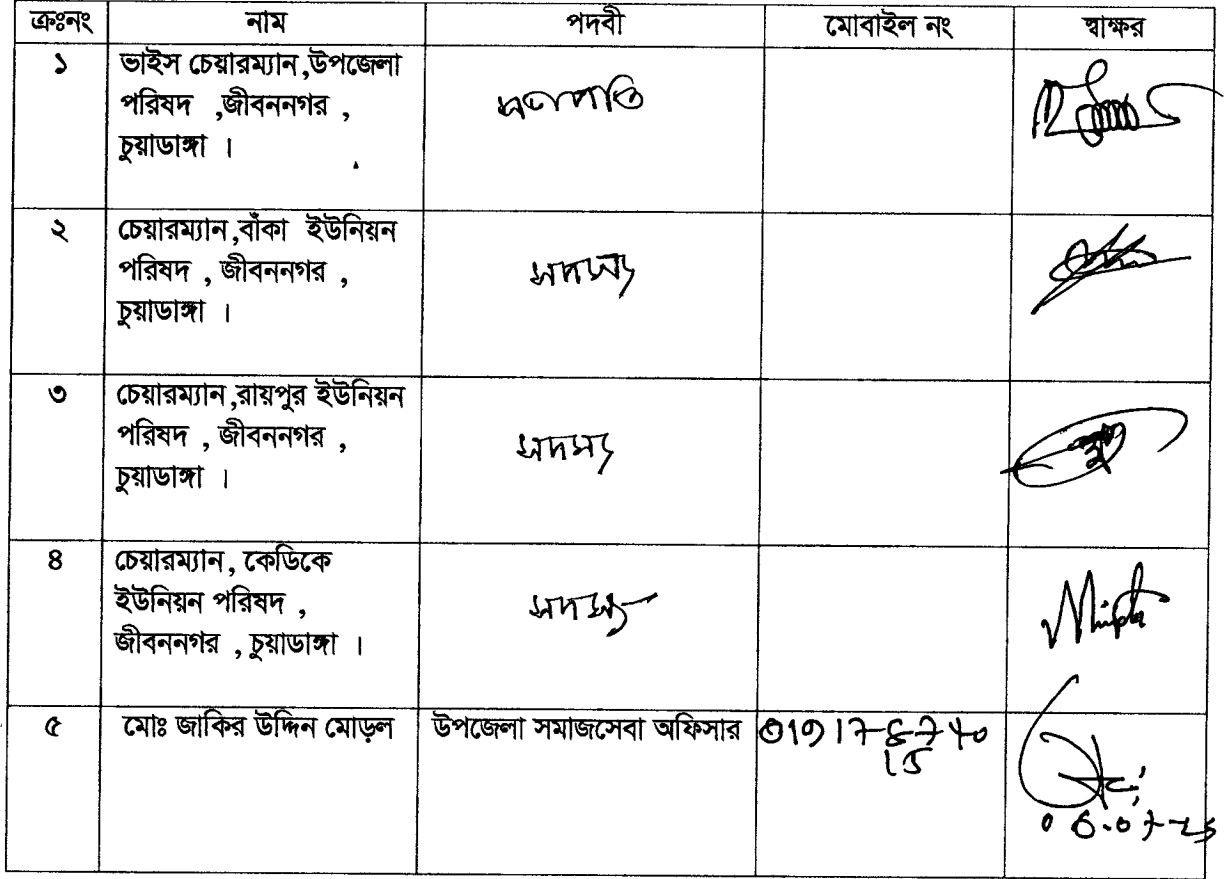 ক্রঃনং নাম পদবী মোবাইল নং স্বাক্ষর
১ ভাইস চেয়ারম্যান,উপজেলা
পরিষদ ,জীবননগর ,
চুয়াডাঙ্গা ।
সভাপতি
২ চেয়ারম্যান,বাঁকা ইউনিয়ন
পরিষদ , জীবননগর ,
চুয়াডাঙ্গা ।
সদস্য
৩ চেয়ারম্যান,রায়পুর ইউনিয়ন
পরিষদ , জীবননগর ,
চুয়াডাঙ্গা ।
সদস্য
৪ চেয়ারম্যান, কেডিকে
ইউনিয়ন পরিষদ ,
জীবননগর , চুয়াডাঙ্গা ।
সদস্য
৫ মোঃ জাকির উদ্দিন মোড়ল উপজেলা সমাজসেবা অফিসার